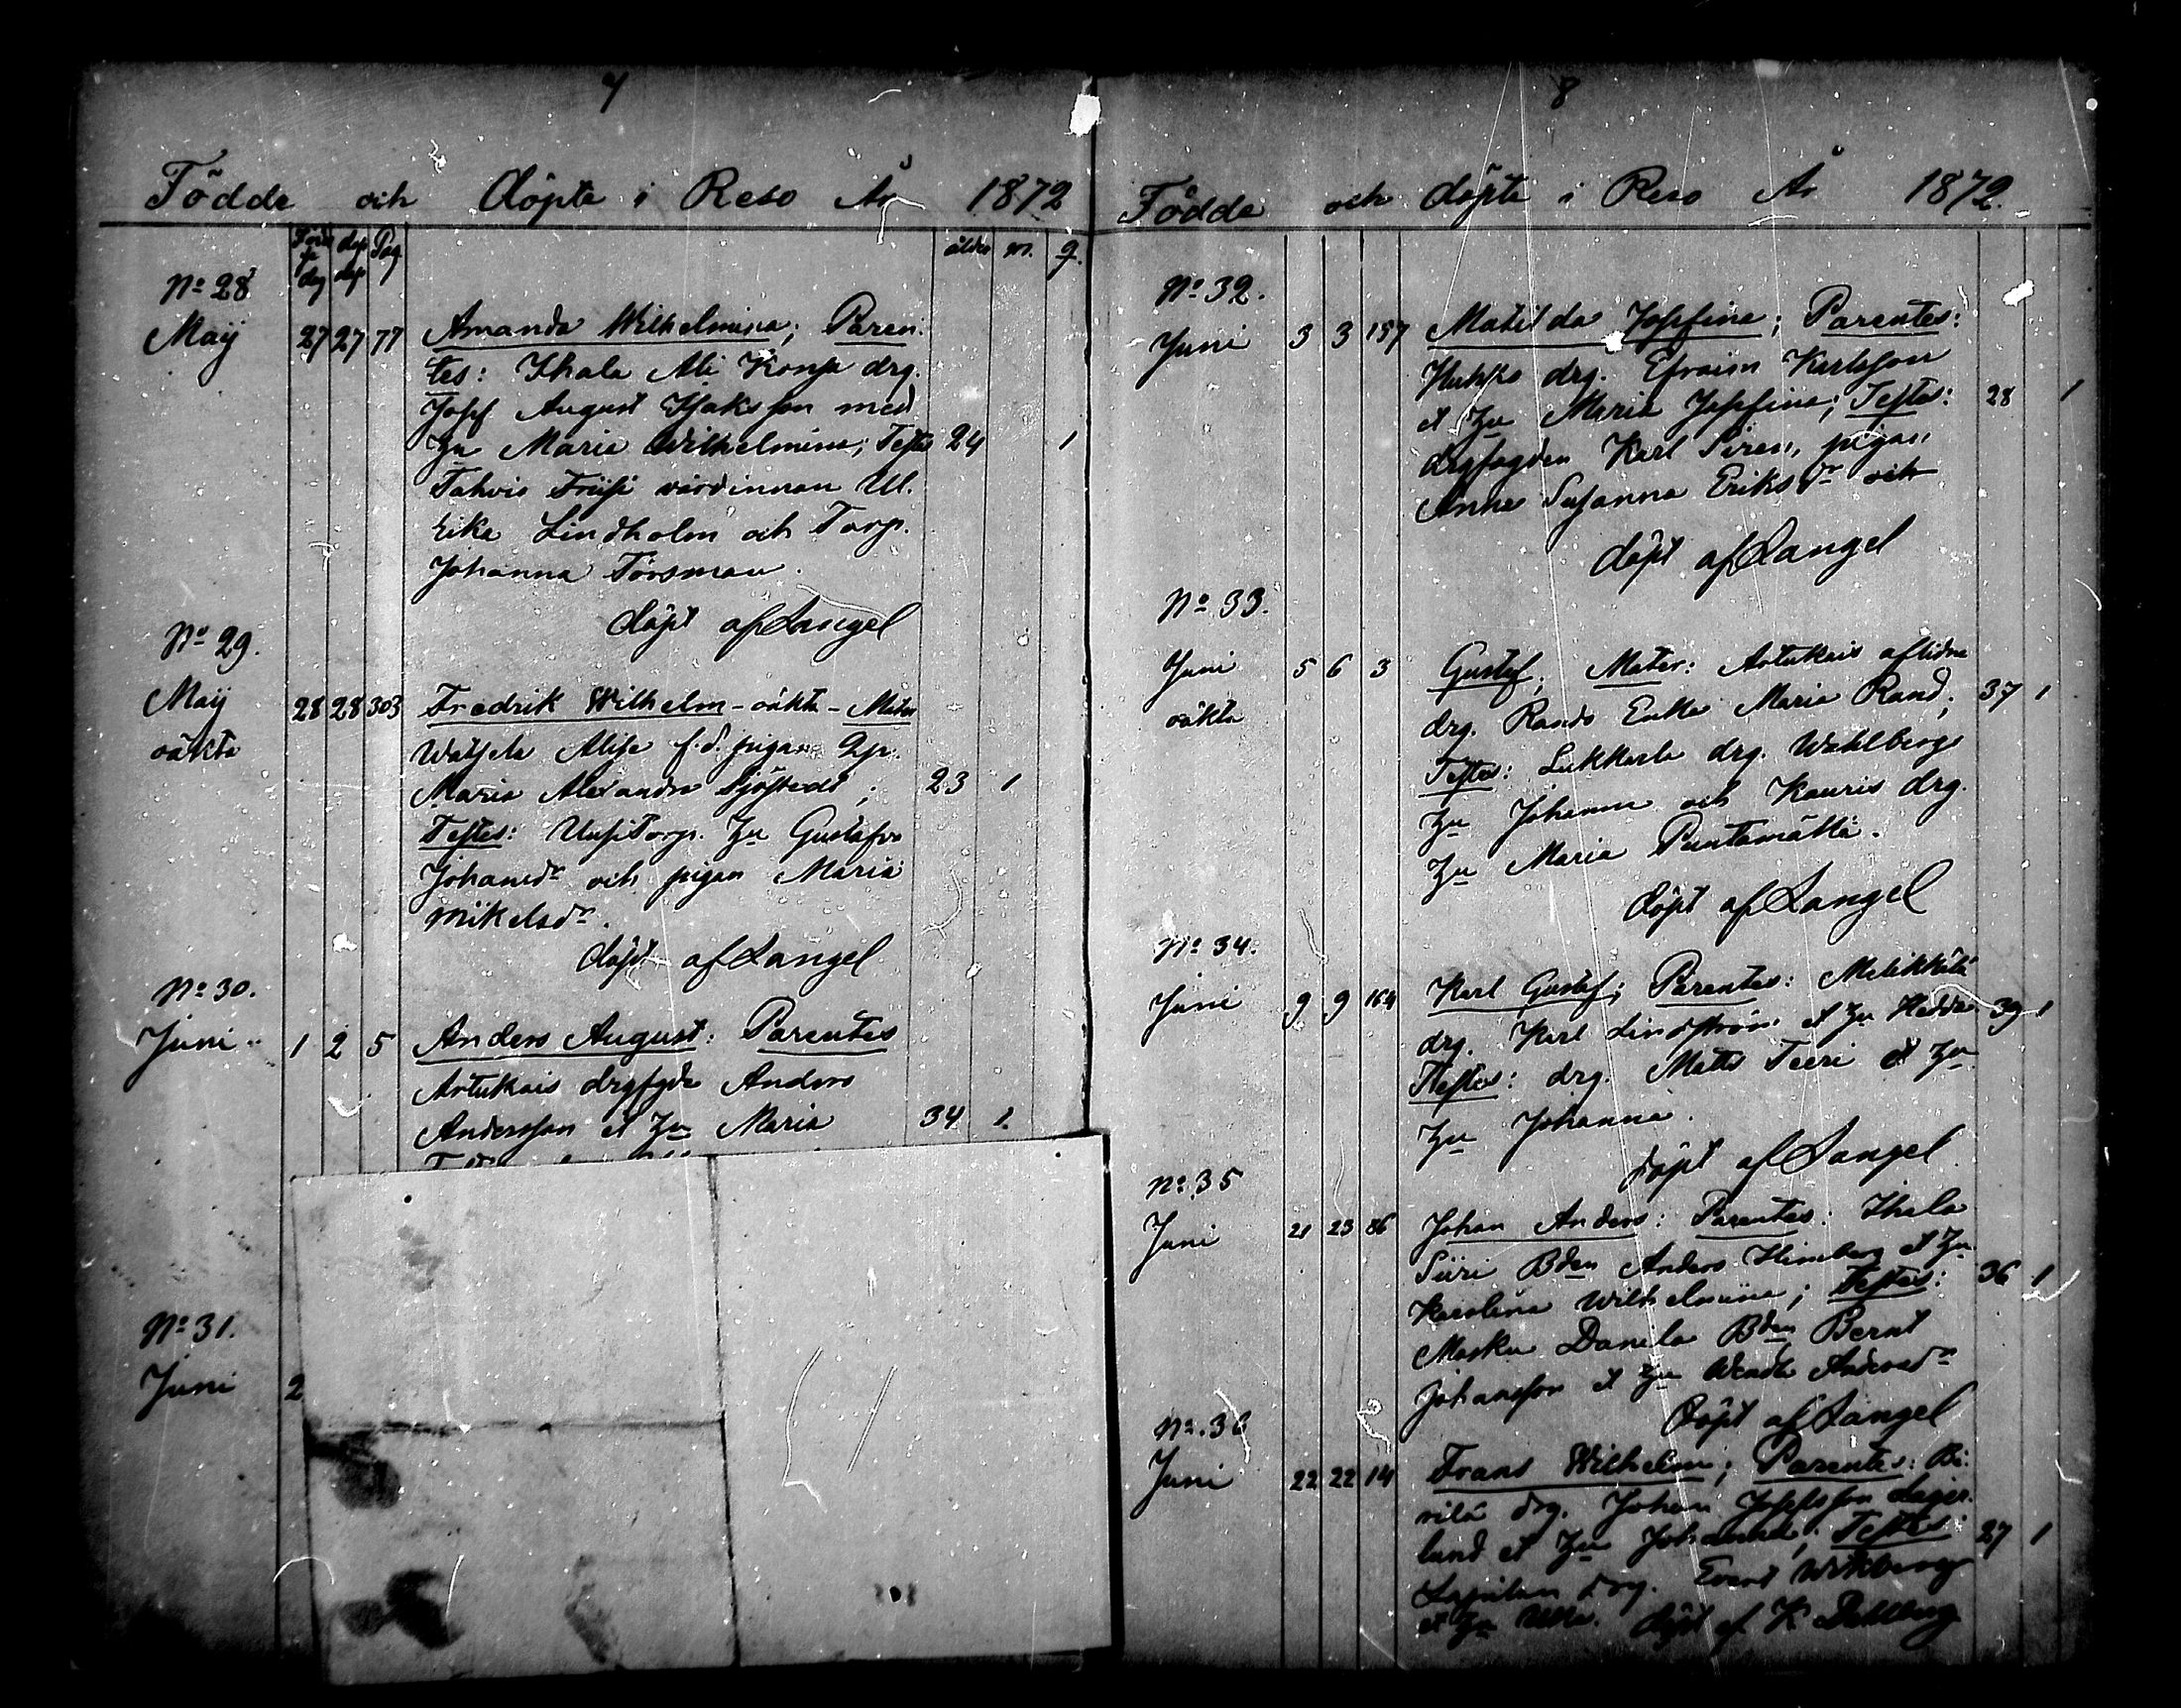 7
Födde och döpte i Reso År 1872
Föd. dag döp dag Pag ålder m. q.
No 28
Maij 27 27 77 Amanda Wilhelmina; Paren:
tes: Ihala Ali Konsa drg.
Josef August Isaksson med
Hu Maria Wilhelmina; Testes 24 1
Tahvio Friisi värdinnan Ul.
rika Lindholm och Torp.
Johanna Forsman.
döpt af Langel
No 29.
Maij 28 28 303 Fredrik Wilhelm - oäkta - Mater
oäkta Wätsela Alise f.d. pigan
Maria Alexandra Sjöstedt; 23 1
Testes: Uusi Torp. Hu Gustafva
Johansdr och pigan Maria
Mikelsdr.
döpt af Langel
No 30.
Juni 1 2 5 Anders August: Parentes
Artukais drgfgde Anders
Andersson et Hu Maria 34 1.
No 31.
Juni 2
8
Födde och döpte i Reso År 1872.
No 32.
Juni 3 3 157 Matilda Josefina; Parentes:
Huhko drg. Efraim Karlsson
et Hu Maria Josefina; Testes: 28 1
drgfogden Karl Siren, pigan
Anna Susanna Eriksdr och
döpt af Langel
No 33.
Juni 5 6 3 Gustaf; Mater: Artukais aflidne
oäkta drg. Rands Enka Maria Rand; 37 1
Testes: Lukkarla drg. Wahlbergs
Hu Johanna och Kauris drg.
Hu Maria Puntamäkki.
döpt af Langel
No 34.
Juni 9 9 164 Karl Gustaf; Parentes: Metikkälä
drg. Karl Lindström et Hu Hedda 39 1
Testes: drg. Matts Teeri et Hu
Hu Johanna.
döpt af Langel
No 35
Juni 21 23 86 Johan Anders: Parentes: Ihala
Siiri Bden Anders Himberg et Hu
Karolina Wilhelmina; Testes: 36 1
Masku Danela Bden Bernt
Johansson et Hu Wendla Andersdr
döpt af Langel
No. 36
Juni 22 22 14 Frans Wilhelm; Parentes: Be:
rilä drg. Johan Josefsson Lager.
lund et Hu Johanna; Testes: 27 1
drg. Evert Wikberg
et Hu Ulla. döpt af K Dahlberg